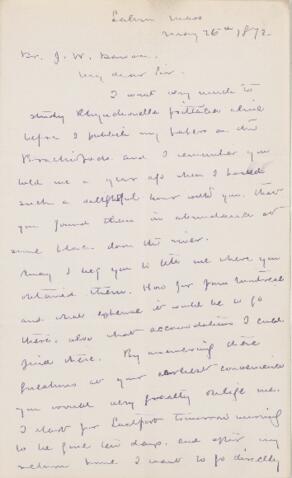 Salem Mass
May 26th 1872.
Dr. J. W. Dawson.
My dear Sir.
I want very much to
study Rhynchonella psittacea alive
before I publish my papers on the
Brachiopods and I remember you
told me a year ago when I passed
such a delightful hour with you, that
you found them in abundance at
some place down the river.
May I beg you to tell me where you
obtained them. How far from Montreal
and what expense it would be to go
there, also what accomodations I could
find there. By answering these
questions at your earliest convenience
you would very greatly oblige me.
I start for Eastport tomorrow morning
to be gone ten days. and after my
return home I want to go directly